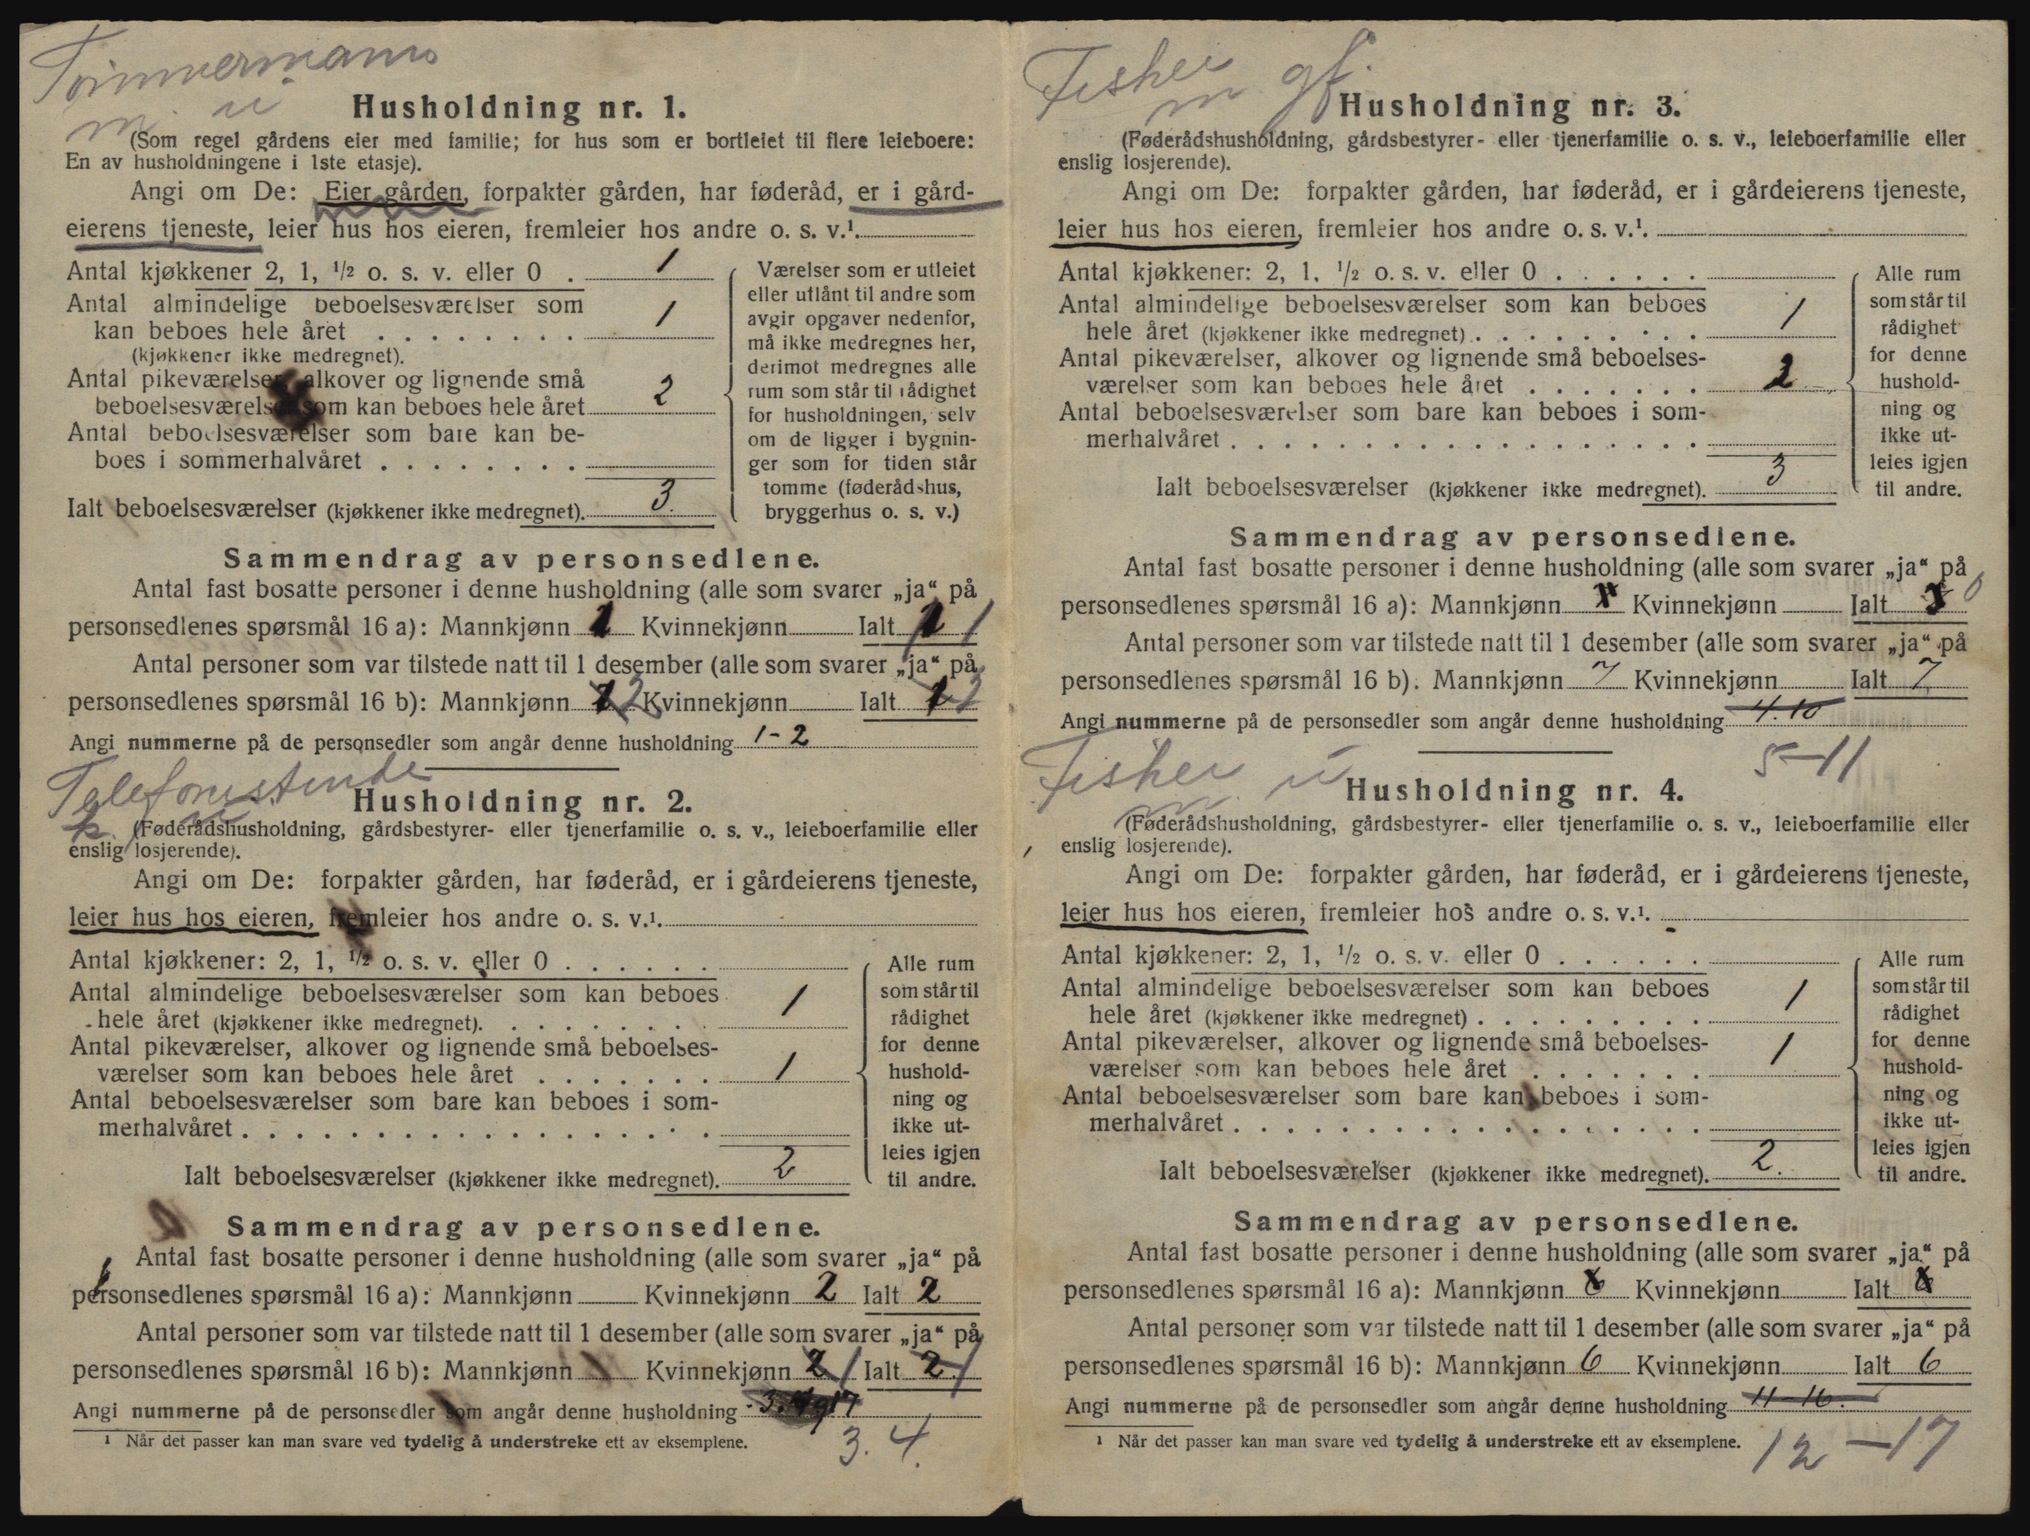 Tømmermann
m. u
Husholdning nr. 1.
(Som regel gårdens eier med familie; for hus som er bortleiet til flere leieboere:
En av husholdningene i 1ste etasje).
Angi om De: Eier gården, forpakter gården, har føderåd, er i gård-
eierens tjeneste, leier hus hos eieren, fremleier hos andre o. s. v.¹.
Antal kjøkkener 2, 1, ½ o. s. v. eller 0 . 1
Antal almindelige beboelsesværelser som
kan beboes hele året . . . . . . . . 1
(kjøkkener ikke medregnet).
Antal pikeværelser, alkover og lignende små
beboelsesværelser som kan beboes hele året 2
Antal beboelsesværelser som bare kan be-
boes i sommerhalvåret . . . . . . . .
Ialt beboelsesværelser (kjøkkener ikke medregnet). 3.
Værelser som er utleiet
eller utlånt til andre som
avgir opgaver nedenfor,
må ikke medregnes her,
derimot medregnes alle
rum som står til rådighet
for husholdningen, selv
om de ligger i bygnin-
ger som for tiden står
tomme (føderådshus,
bryggerhus o. s. v.)
Sammendrag av personsedlene.
Antal fast bosatte personer i denne husholdning (alle som svarer „ja“ på
personsedlenes spørsmål 16 a): Mannkjønn 1 Kvinnekjønn Ialt 1 1
Antal personer som var tilstede natt til 1 desember (alle som svarer „ja“ på
personsedlenes spørsmål 16 b): Mannkjønn 1 2 Kvinnekjønn Ialt 1 2
Angi nummerne på de personsedler som angår denne husholdning 1-2
Telefonistinde
k. u
Husholdning nr. 2.
(Føderådshusholdning, gårdsbestyrer- eller tjenerfamilie o. s. v., leieboerfamilie eller
enslig losjerende).
Angi om De: forpakter gården, har føderåd, er i gårdeierens tjeneste,
leier hus hos eieren, fremleier hos andre o. s. v.¹.
Antal kjøkkener: 2, 1, ½ o. s. v. eller 0 . . . . . .
Antal almindelige beboelsesværelser som kan beboes
hele året (kjøkkener ikke medregnet). . . . . . . . . 1
Antal pikeværelser, alkover og lignende små beboelses-
værelser som kan beboes hele året . . . . . . . 1
Antal beboelsesværelser som bare kan beboes i som-
merhalvåret . . . . . . . . . . . . . . . . . .
Ialt beboelsesværelser (kjøkkener ikke medregnet). 2
Alle rum
som står til
rådighet
for denne
hushold-
ning og
ikke ut-
leies igjen
til andre.
Sammendrag av personsedlene.
Antal fast bosatte personer i denne husholdning (alle som svarer „ja“ på
personsedlenes spørsmål 16 a): Mannkjønn Kvinnekjønn 2 Ialt 2
Antal personer som var tilstede natt til 1 desember (alle som svarer „ja“ på
personsedlenes spørsmål 16 b): Mannkjønn Kvinnekjønn 2 1 Ialt 2 1
Angi nummerne på de personsedler som angår denne husholdning
¹ Når det passer kan man svare ved tydelig å understreke ett av eksemplene.
3. 4.
Fisker
m gf.
Husholdning nr. 3.
(Føderådshusholdning, gårdsbestyrer- eller tjenerfamilie o. s. v., leieboerfamilie eller
enslig losjerende).
Angi om De: forpakter gården, har føderåd, er i gårdeierens tjeneste,
leier hus hos eieren, fremleier hos andre o. s. v.¹.
Antal kjøkkener: 2, 1, ½ o. s. v. eller 0 . . . . . .
Antal almindelige beboelsesværelser som kan beboes
hele året (kjøkkener ikke medregnet) . . . . . . . . . 1
Antal pikeværelser, alkover og lignende små beboelses-
værelser som kan beboes hele året . . . . . . . 2
Antal beboelsesværelser som bare kan beboes i som-
merhalvåret . . . . . . . . . . . . . . . . . .
Ialt beboelsesværelser (kjøkkener ikke medregnet). 3
Alle rum
som står til
rådighet
for denne
hushold-
ning og
ikke ut-
leies igjen
til andre.
Sammendrag av personsedlene.
Antal fast bosatte personer i denne husholdning (alle som svarer „ja“ på
personsedlenes spørsmål 16 a): Mannkjønn Kvinnekjønn Ialt 0
Antal personer som var tilstede natt til 1 desember (alle som svarer „ja“ på
personsedlenes spørsmål 16 b). Mannkjønn 7 Kvinnekjønn Ialt 7
Angi nummerne på de personsedler som angår denne husholdning 4.10
5-11
Fisker
m. u
Husholdning nr. 4.
(Føderådshusholdning, gårdsbestyrer- eller tjenerfamilie o. s. v., leieboerfamilie eller
enslig losjerende).
Angi om De: forpakter gården, har føderåd, er i gårdeierens tjeneste,
leier hus hos eieren, fremleier hos andre o. s. v.¹.
Antal kjøkkener: 2, 1, ½ o. s. v. eller 0 . . . . . .
Antal almindelige beboelsesværelser som kan beboes
hele året (kjøkkener ikke medregnet) . . . . . . . . . 1
Antal pikeværelser, alkover og lignende små beboelses-
værelser som kan beboes hele året . . . . . . . 1
Antal beboelsesværelser som bare kan beboes i som-
merhalvåret . . . . . . . . . . . . . . . . . .
Ialt beboelsesværelser (kjøkkener ikke medregnet). 2.
Alle rum
som står til
rådighet
for denne
hushold-
ning og
ikke ut-
leies igjen
til andre.
Sammendrag av personsedlene.
Antal fast bosatte personer i denne husholdning (alle som svarer „ja“ på
personsedlenes spørsmål 16 a): Mannkjønn Kvinnekjønn Ialt
Antal personer som var tilstede natt til 1 desember (alle som svarer „ja“ på
personsedlenes spørsmål 16 b): Mannkjønn 6 Kvinnekjønn Ialt 6
Angi nummerne på de personsedler som angår denne husholdning 11-16.
¹ Når det passer kan man svare ved tydelig å understreke ett av eksemplene.
12-17